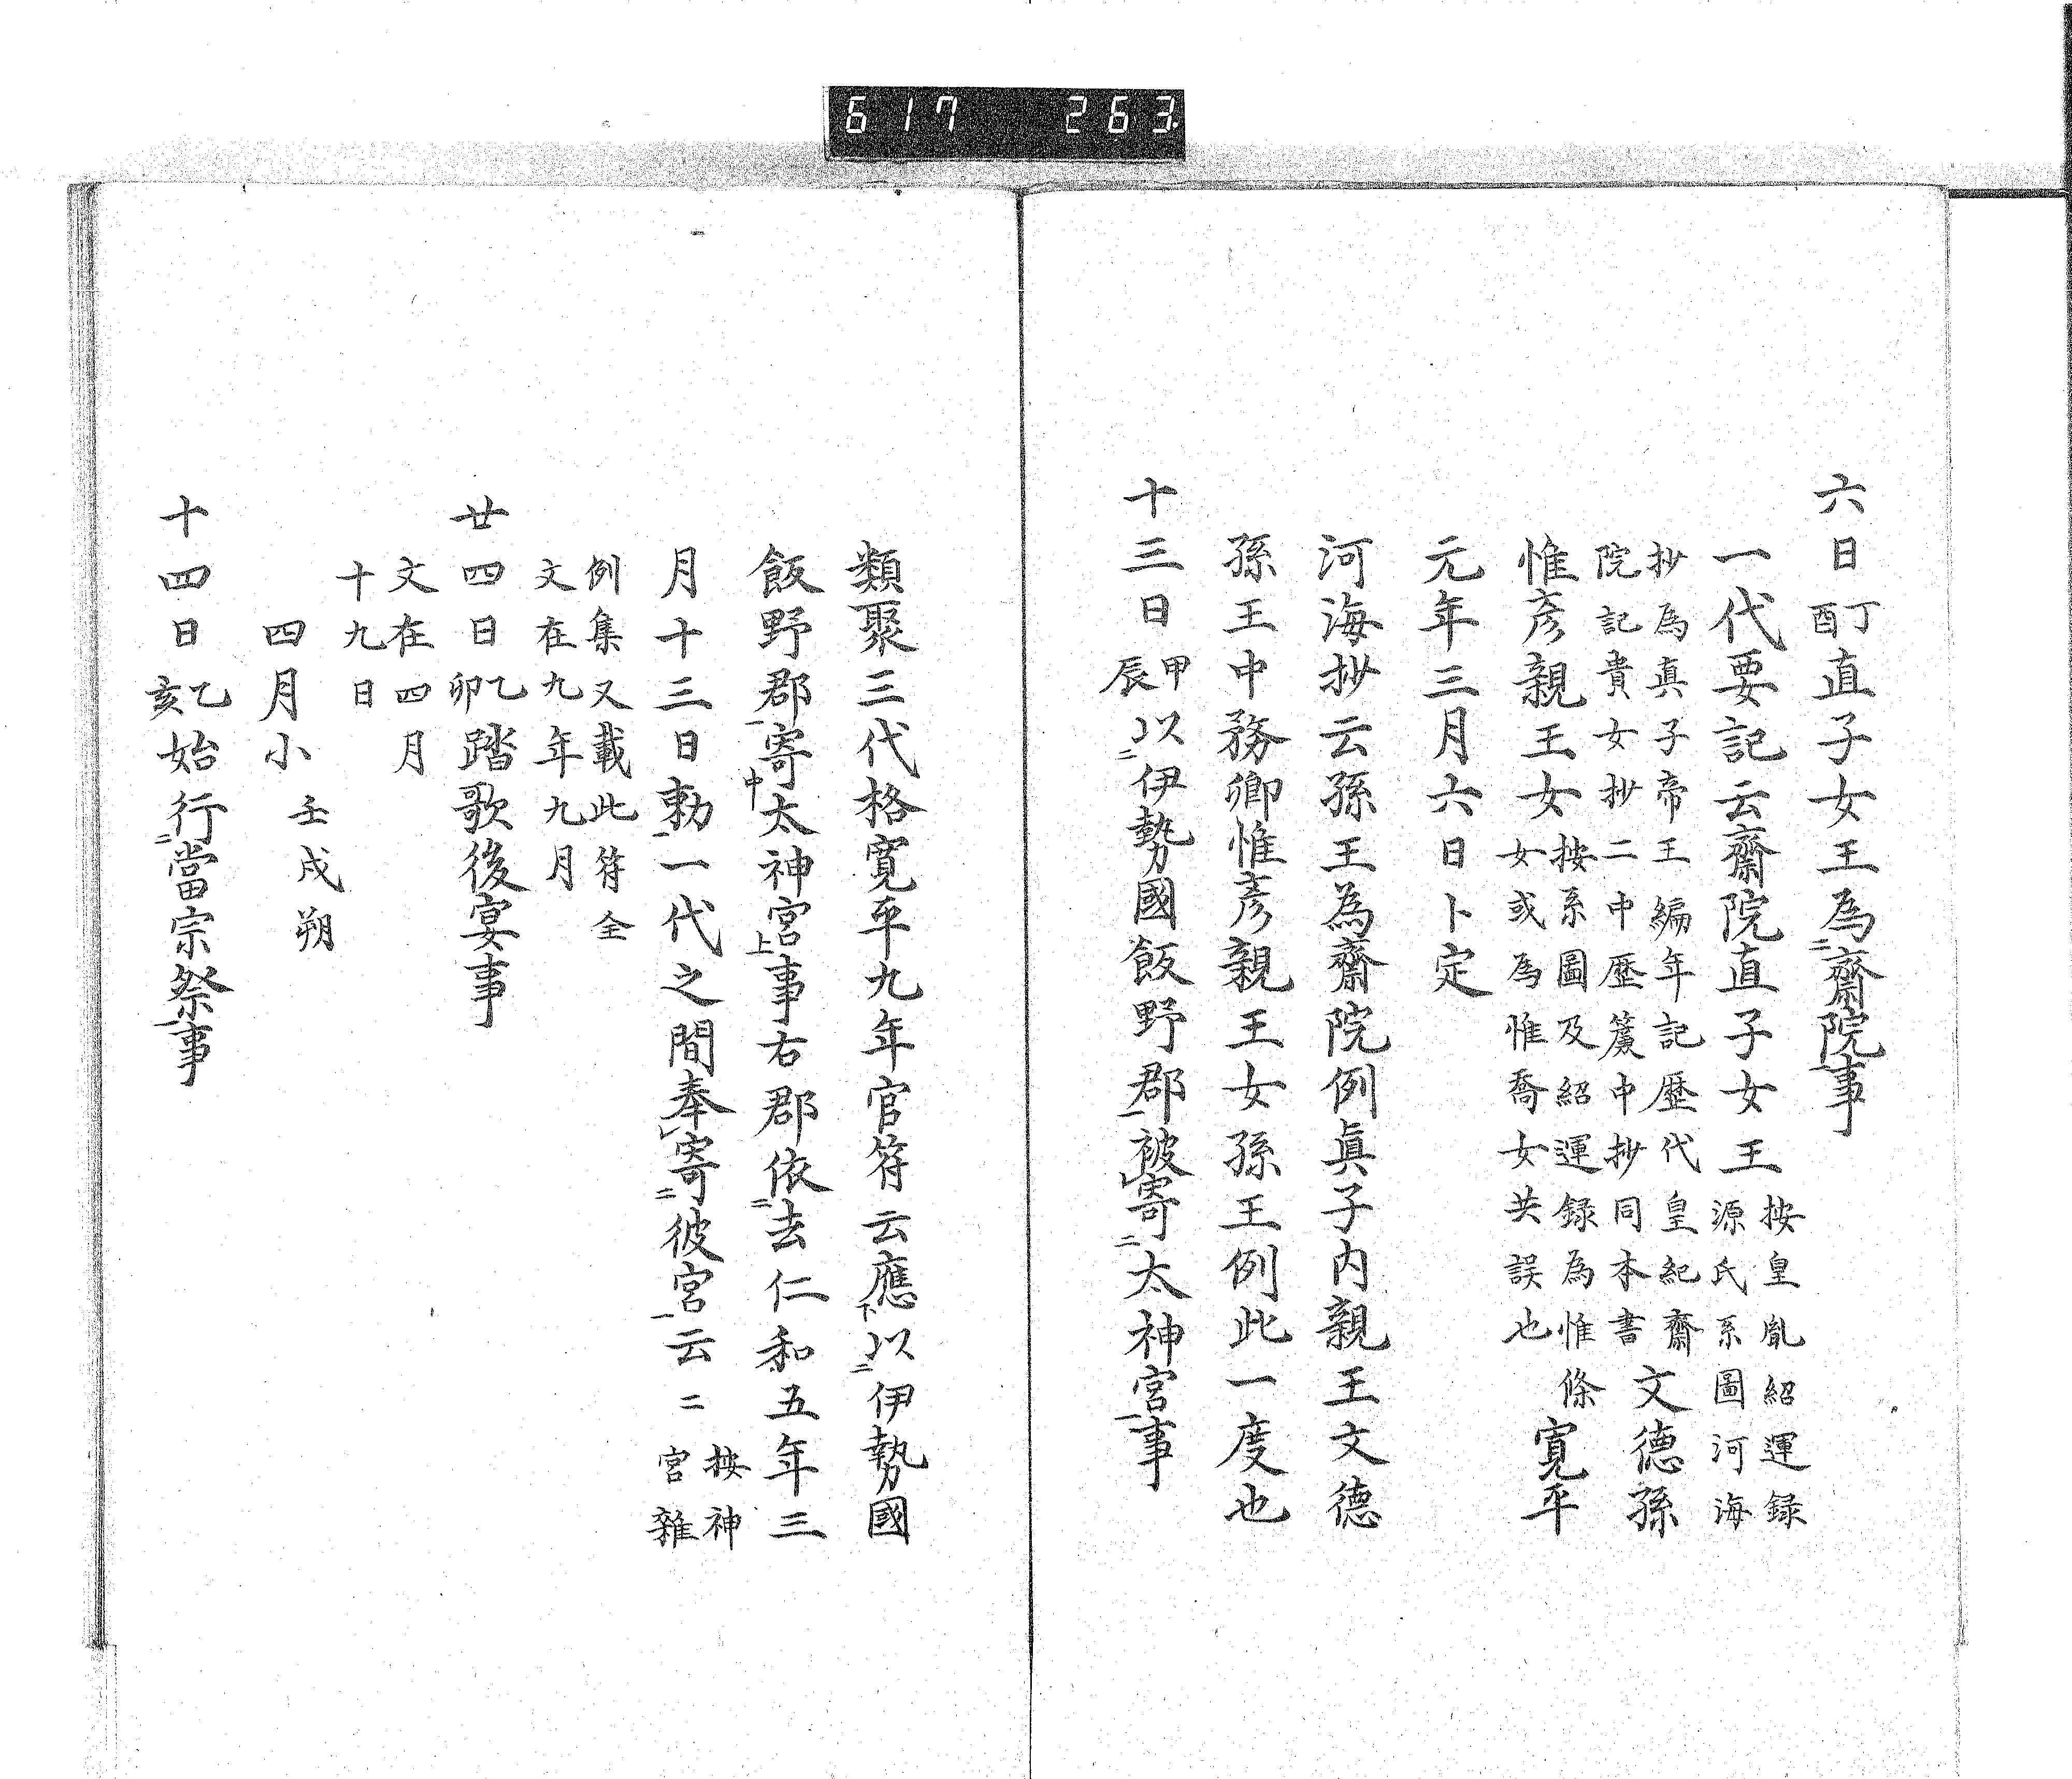 617 263
六日丁酉直子女王為二齋院一事
一代要記云齋院直子女王按皇胤紹運録源氏系圖河海
抄為真子帝王編年記歷代皇紀齋院記貴女抄二中歷簾中抄同本書文德孫
惟彥親王女按系圖及紹運録為惟條女或為惟喬女共誤也寛平
元年三月六日卜定
河海抄云孫王為齋院例眞子内親王文德
孫王中務卿惟彥親王女孫王例此一度也
十三日甲辰以二伊勢國飯野郡一被レ寄二太神宮一事
類聚三代格寛平九年官符云應下以二伊勢國
飯野郡一寄中太神宮上事右郡依二去仁和五年三
月十三日勅一一代之間奉レ寄二彼宮一云二按神宮雜
例集又載此符全文在九年九月
廿四日乙卯踏歌後宴事
文在四月十九日
四月小壬戌朔
十四日乙亥始行二當宗祭一事